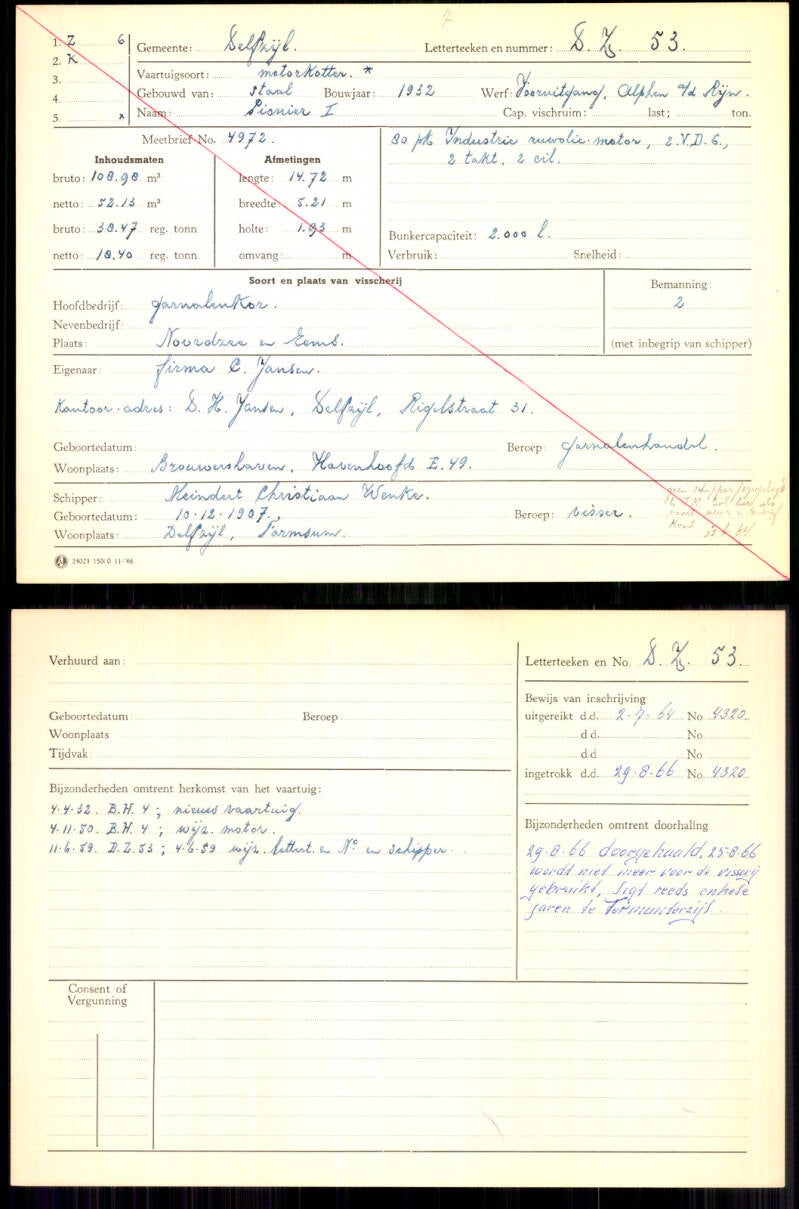 7
1. Z 6
2. K
3.
4.
5. x
Gemeente: Delfzijl. Letterteeken en nummer: D. Z. 53.
Vaartuigsoort: motorkotter. *
Gebouwd van: staal Bouwjaar: 1932 Werf: Vooruitgang, Alphen a/d Rijn.
Naam: Pionier I Cap. vischruim: last; ton.
Meetbrief No. 4972.
Inhoudsmaten
bruto: 108.98 m³
netto: 52.13 m³
bruto: 38.47 reg. tonn
netto: 18.40 reg. tonn
Afmetingen
lengte: 14.72 m
breedte: 5.21 m
holte: 1.93 m
omvang: m
80 pk Industrie ruwolie-motor, 2.V.D.6.,
2 takt, 2 cil.
Bunkercapaciteit: 2.000 l.
Verbruik: Snelheid:
Soort en plaats van visscherij
Hoofdbedrijf: garnalenkor.
Nevenbedrijf:
Plaats: Noordzee en Eems.
Bemanning:
2
(met inbegrip van schipper)
Eigenaar: firma C. Jansen.
Kantoor-adres: D. H. Jansen, Delfzijl, Rigelstraat 31.
Geboortedatum: Beroep: garnalenhandel.
Woonplaats: Brouwershaven, Havenhoofd E.49.
Schipper: Meindert Christiaan Wenke.
Geboortedatum: 10-12-1907, Beroep: visser.
Woonplaats: Delfzijl, Farmsum.
geen schipper/opgelegd
24023 150(0 11-'46
Verhuurd aan:
Geboortedatum: Beroep
Woonplaats
Tijdvak:
Bijzonderheden omtrent herkomst van het vaartuig:
4-4-32. B.H. 4; nieuw vaartuig.
4-11-50. B.H. 4; wijz. motor.
11-6-59. D.Z. 53; 4-6-59 wijz. lettert. en No en schipper.
Letterteeken en No. D. Z. 53
Bewijs van inschrijving
uitgereikt d.d. 2-7-64 No 4320
d d. No.
d.d No
ingetrokk d.d. 29-8-66 No. 4320
Bijzonderheden omtrent doorhaling
29-8-66 doorgehaald, 25-8-66
wordt niet meer voor de visserij
gebruikt, ligt reeds enkele
jaren te Termunterzijl.
Consent of
Vergunning